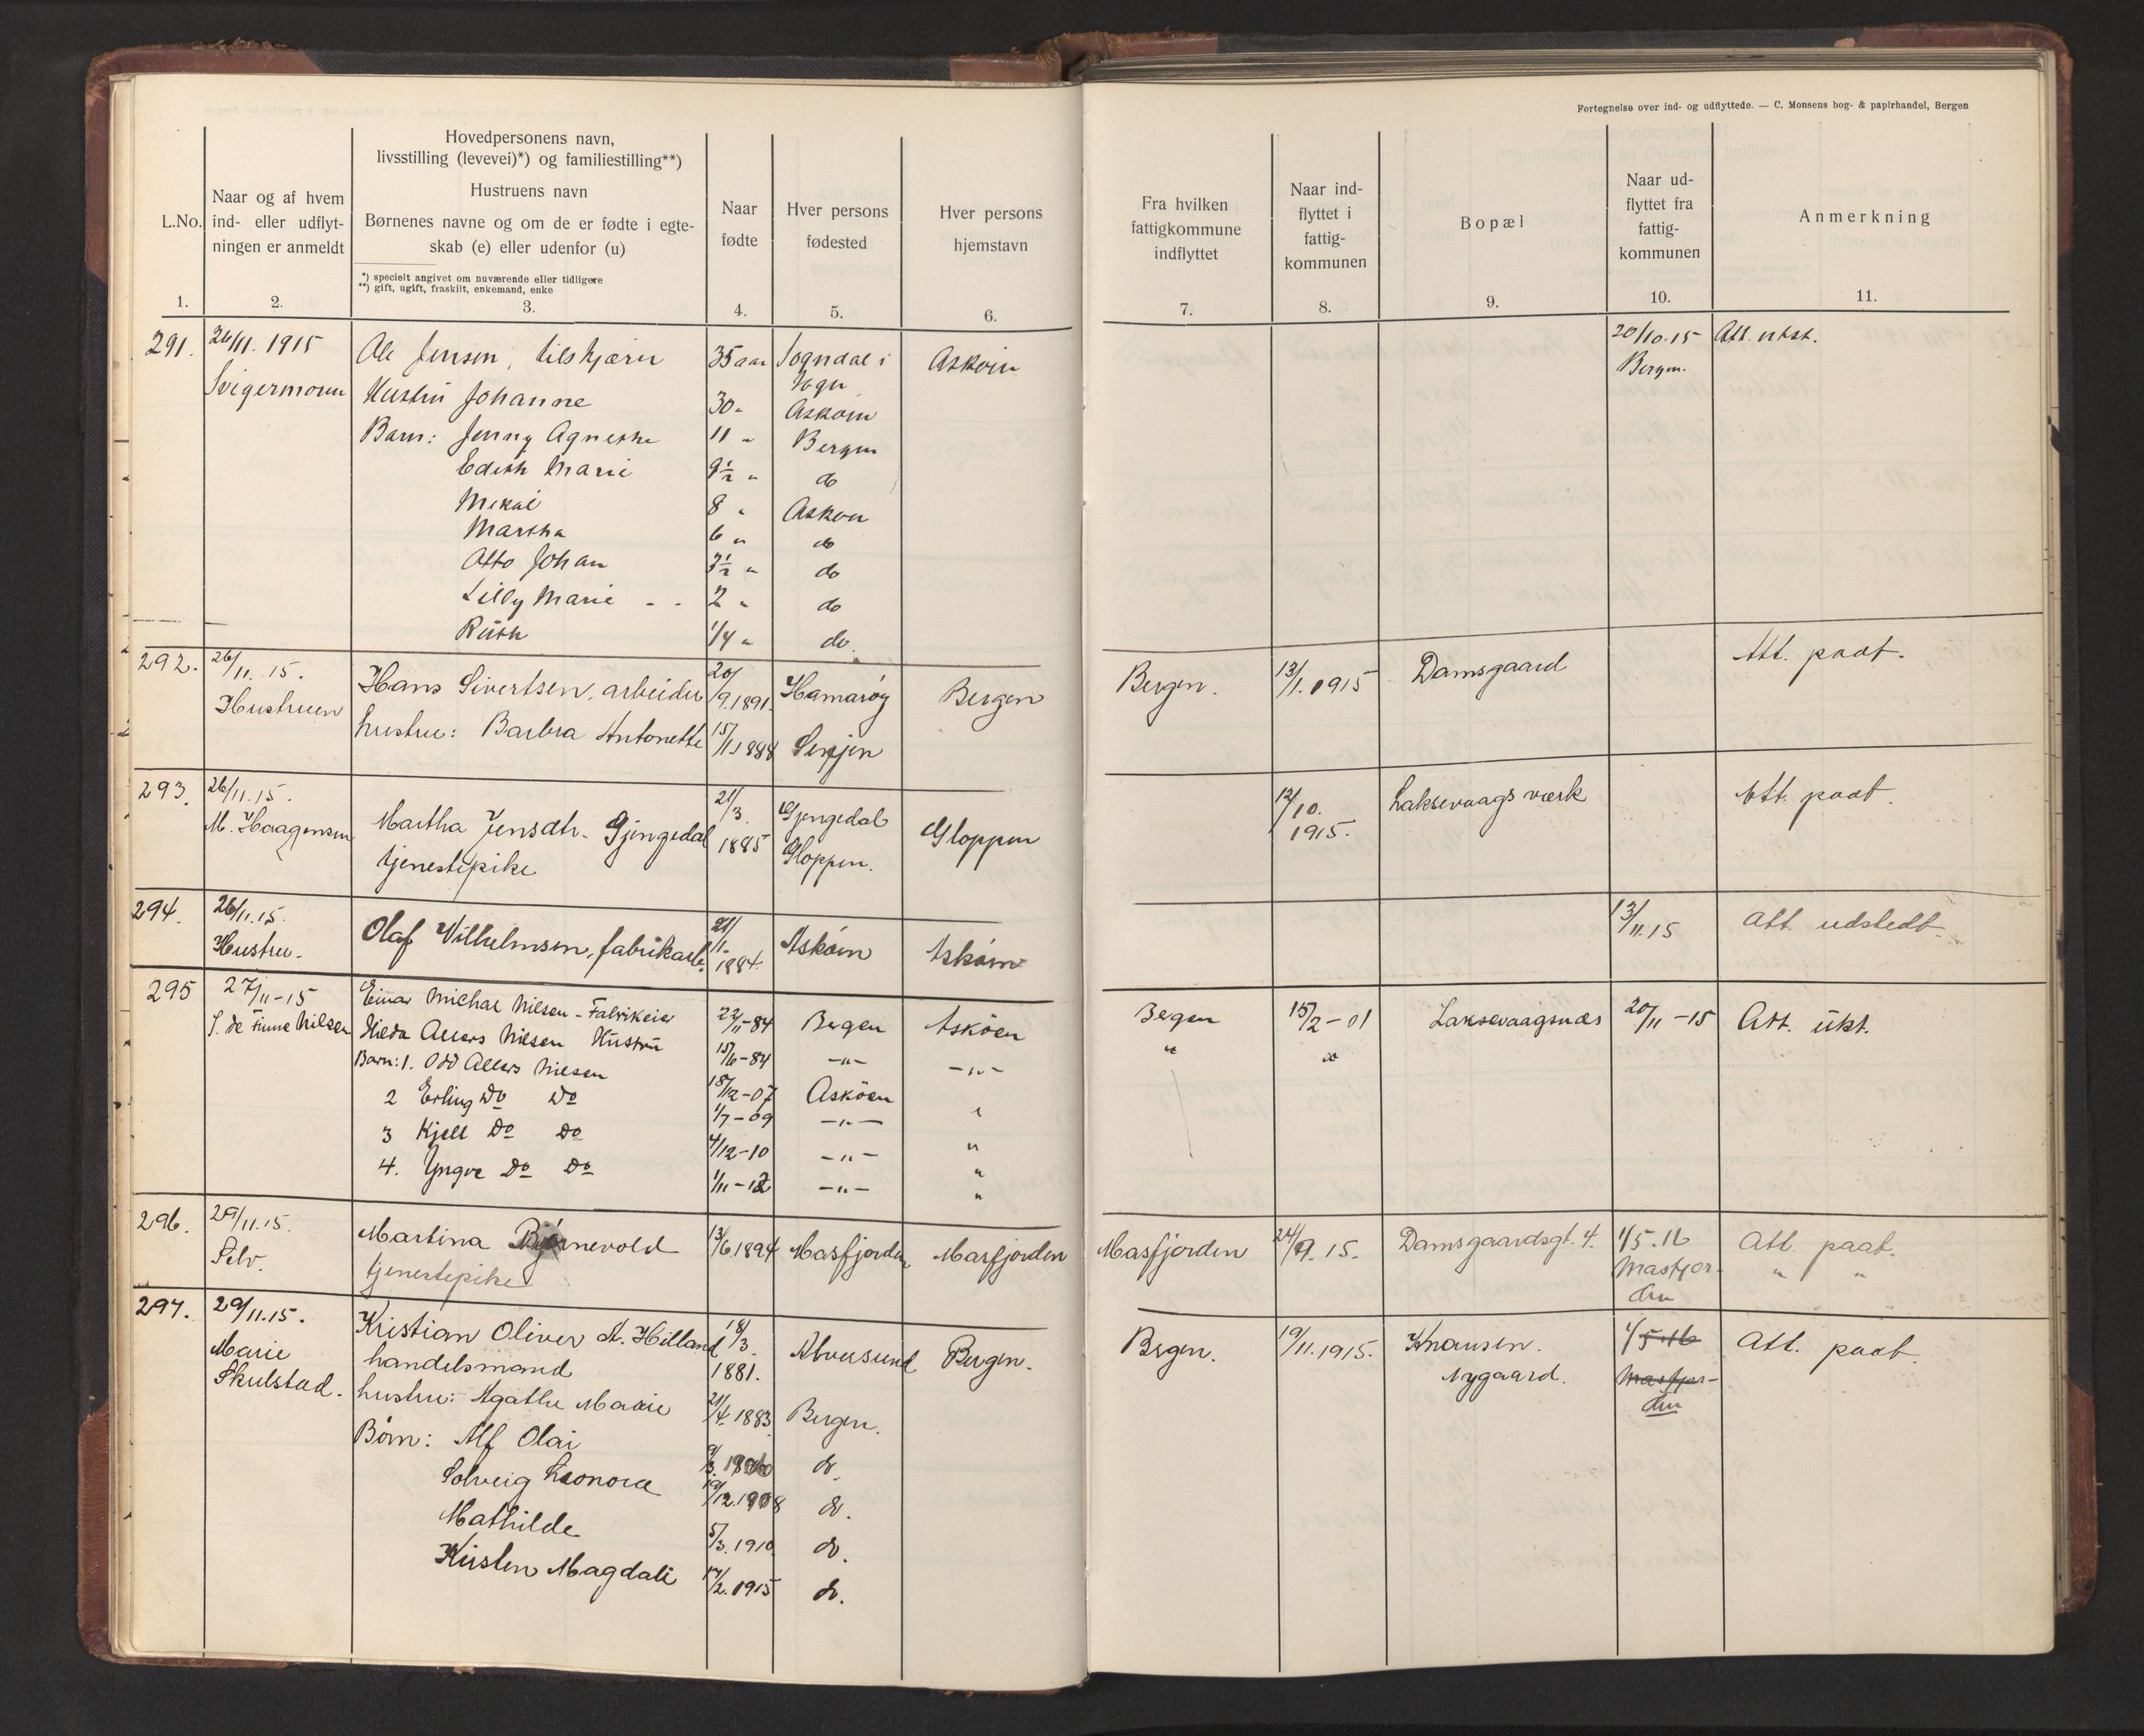 Fortegnelse over ind- og udflyttede. — C. Monsens bog- & papirhandel, Bergen
L.No.
1.
Naar og af hvem
ind- eller udflyt-
ningen er anmeldt
2.
Hovedpersonens navn,
livsstilling (levevei)*) og familiestilling**)
Hustruens navn
Børnenes navne og om de er fødte i egte-
skab (e) eller udenfor (u)
*) specielt angivet om nuværende eller tidligere
**) gift, ugift, fraskilt, enkemand, enke
3.
Naar
fødte
4.
Hver persons
fødested
5.
Hver persons
hjemstavn
6.
Fra hvilken
fattigkommune
indflyttet
7.
Naar ind-
flyttet i
fattig-
kommunen
8.
Bopæl
9.
Naar ud-
flyttet fra
fattig-
kommunen
10.
Anmerkning
11.
291. 26/11. 1915 Ole Jensen, 35 aar Sogndal i Askøin 20/10.15 Att. utst.
Svigermoren Sogn Bergen.
Hustru Johanne 30 " Askøin
Barn: Jenny Agnethe 11 " Bergen
Edith Marie 9½ " do
Mikal 8 " Askøen
Martha 6 " do
Otto Johan 3½ " do
Lilly Marie - - 2 " do
Ruth 1/4 " do.
292. 26/11. 15. Hans Sivertsen, arbeider 20/9.1891. Hamarøy Bergen Bergen. 13/1.1915 Damsgaard Att. paat.
Hustruen hustru: Barbra Antonette 15/11.1888 Senjen
293. 26/11.15. Martha Jensdtr. Gjengedal 21/3. 1885 Gjengedal Gloppen 12/10. 1915. Laksevaags værk Att. paat.
M. Haagensen tjenestepike Gloppen.
294. 26/11.15. Olaf Wilhelmsen, fabrikarb. 21/1. 1884. Askøin Askøin 13/11.15 Att. udstedt.
Hustru.
295 27/11-15 Einar Michal Nilsen - Fabrikeier 22/11-84 Bergen Askøen Bergen 15/2-01 Laksevaagsnæs 20/11-15 Att. ükt.
S. de Finne Nilsen Hilda Allers Nilsen Hustru 15/6-84 -"- -"- " "
Barn: 1. Odd Allers Nilsen 18/12-07 Askøen "
2 Erling Do Do 1/7-09 -"- "
3 Kjell Do Do 4/12-10 -"- "
4. Yngve Do Do 1/11-12 -"- "
296. 29/11.15. Martina Bjørnevold 13/6.1894 Masfjorden Masfjorden Masfjorden 24/9.15. Damsgaardsgt. 4. 1/5.16 Att. paat.
Selv. tjenestepike Masfjor- " "
den
297. 29/11.15. Kristian Oliver A. Hilland 18/3. 1881. Alversund Bergen. Bergen. 19/11.1915. Knausen. 1/5 16 Att. paat.
Marie handelsmand Nygaard. Masfjor-
Skulstad. den
hustru: Agathe Marie 21/4.1883 Bergen.
Børn: Alf Olai do.
Solveig Leonora 19/12.1908 do.
Mathilde 5/3.1910 do.
Kirsten Magdali 14/2.1915 do.